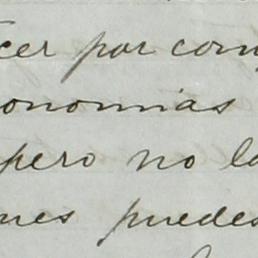 cer por com
onomias
pero no la
ues puedes